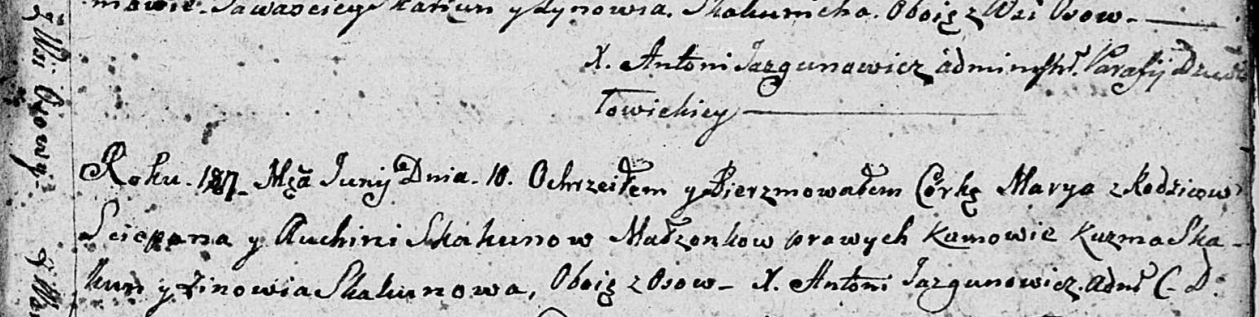 Skakun y Zynowia. Skakunicha. Oboię z Wsi Osow.
X. Antoni Jazgunowicz administr. Parafij
łowickiey
Roku. Mca Junij Dnia. 10. Ochrzciłem y Bierzmowałem Córkę Marya z Rodzicow
Sciepana y Auchini Skakunow Małżonkow prawych Kumowie Kuzma Ska-
kun y Zinowia Skakunowa, Oboię z Osow - X. Antoni Jazgunowicz. Adm C. D.
Wsi Osowy